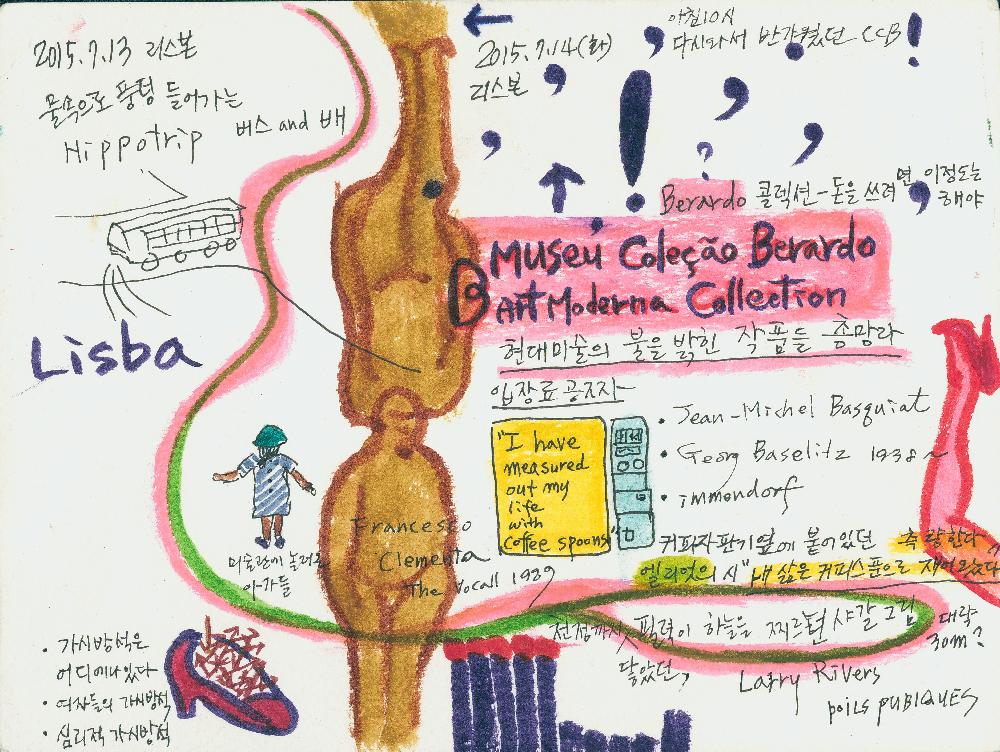 2015.7.13 리스본
물속으로 풍덩 들어가는
Hippotrip 버스 and 배
Lisba
2015.7.14(화)
리스본
아침 10시
다시와서 반가웠던 CCB!
Berardo 콜렉션-돈을 쓰려면, 이정도는
해야
Museu Coleção Berardo
Art Moderna Collection
현대미술의 불을 밝힌 작품들 총망라
입장료 공짜
"I have
measured
out my
life
with
coffee spoons"
• Jean-Michel Basquiat
• Georg Baselitz 1938~
• immendorf
커피자판기옆에 붙어있던 측량한다
엘리엇의 시 "내 삶은 커피스푼으로 재어왔다
Francesco
Clementa
The Vocall 1989
미술관에 놀러온
아가들
천정까지 필력이 하늘을 찌르던 샤갈 그림
닿았던,
대략
30m?
Larry Rivers
poils PUBIQUES
• 가시방석은
어디에나 있다
• 여자들의 가시방석
• 심리적 가시방석